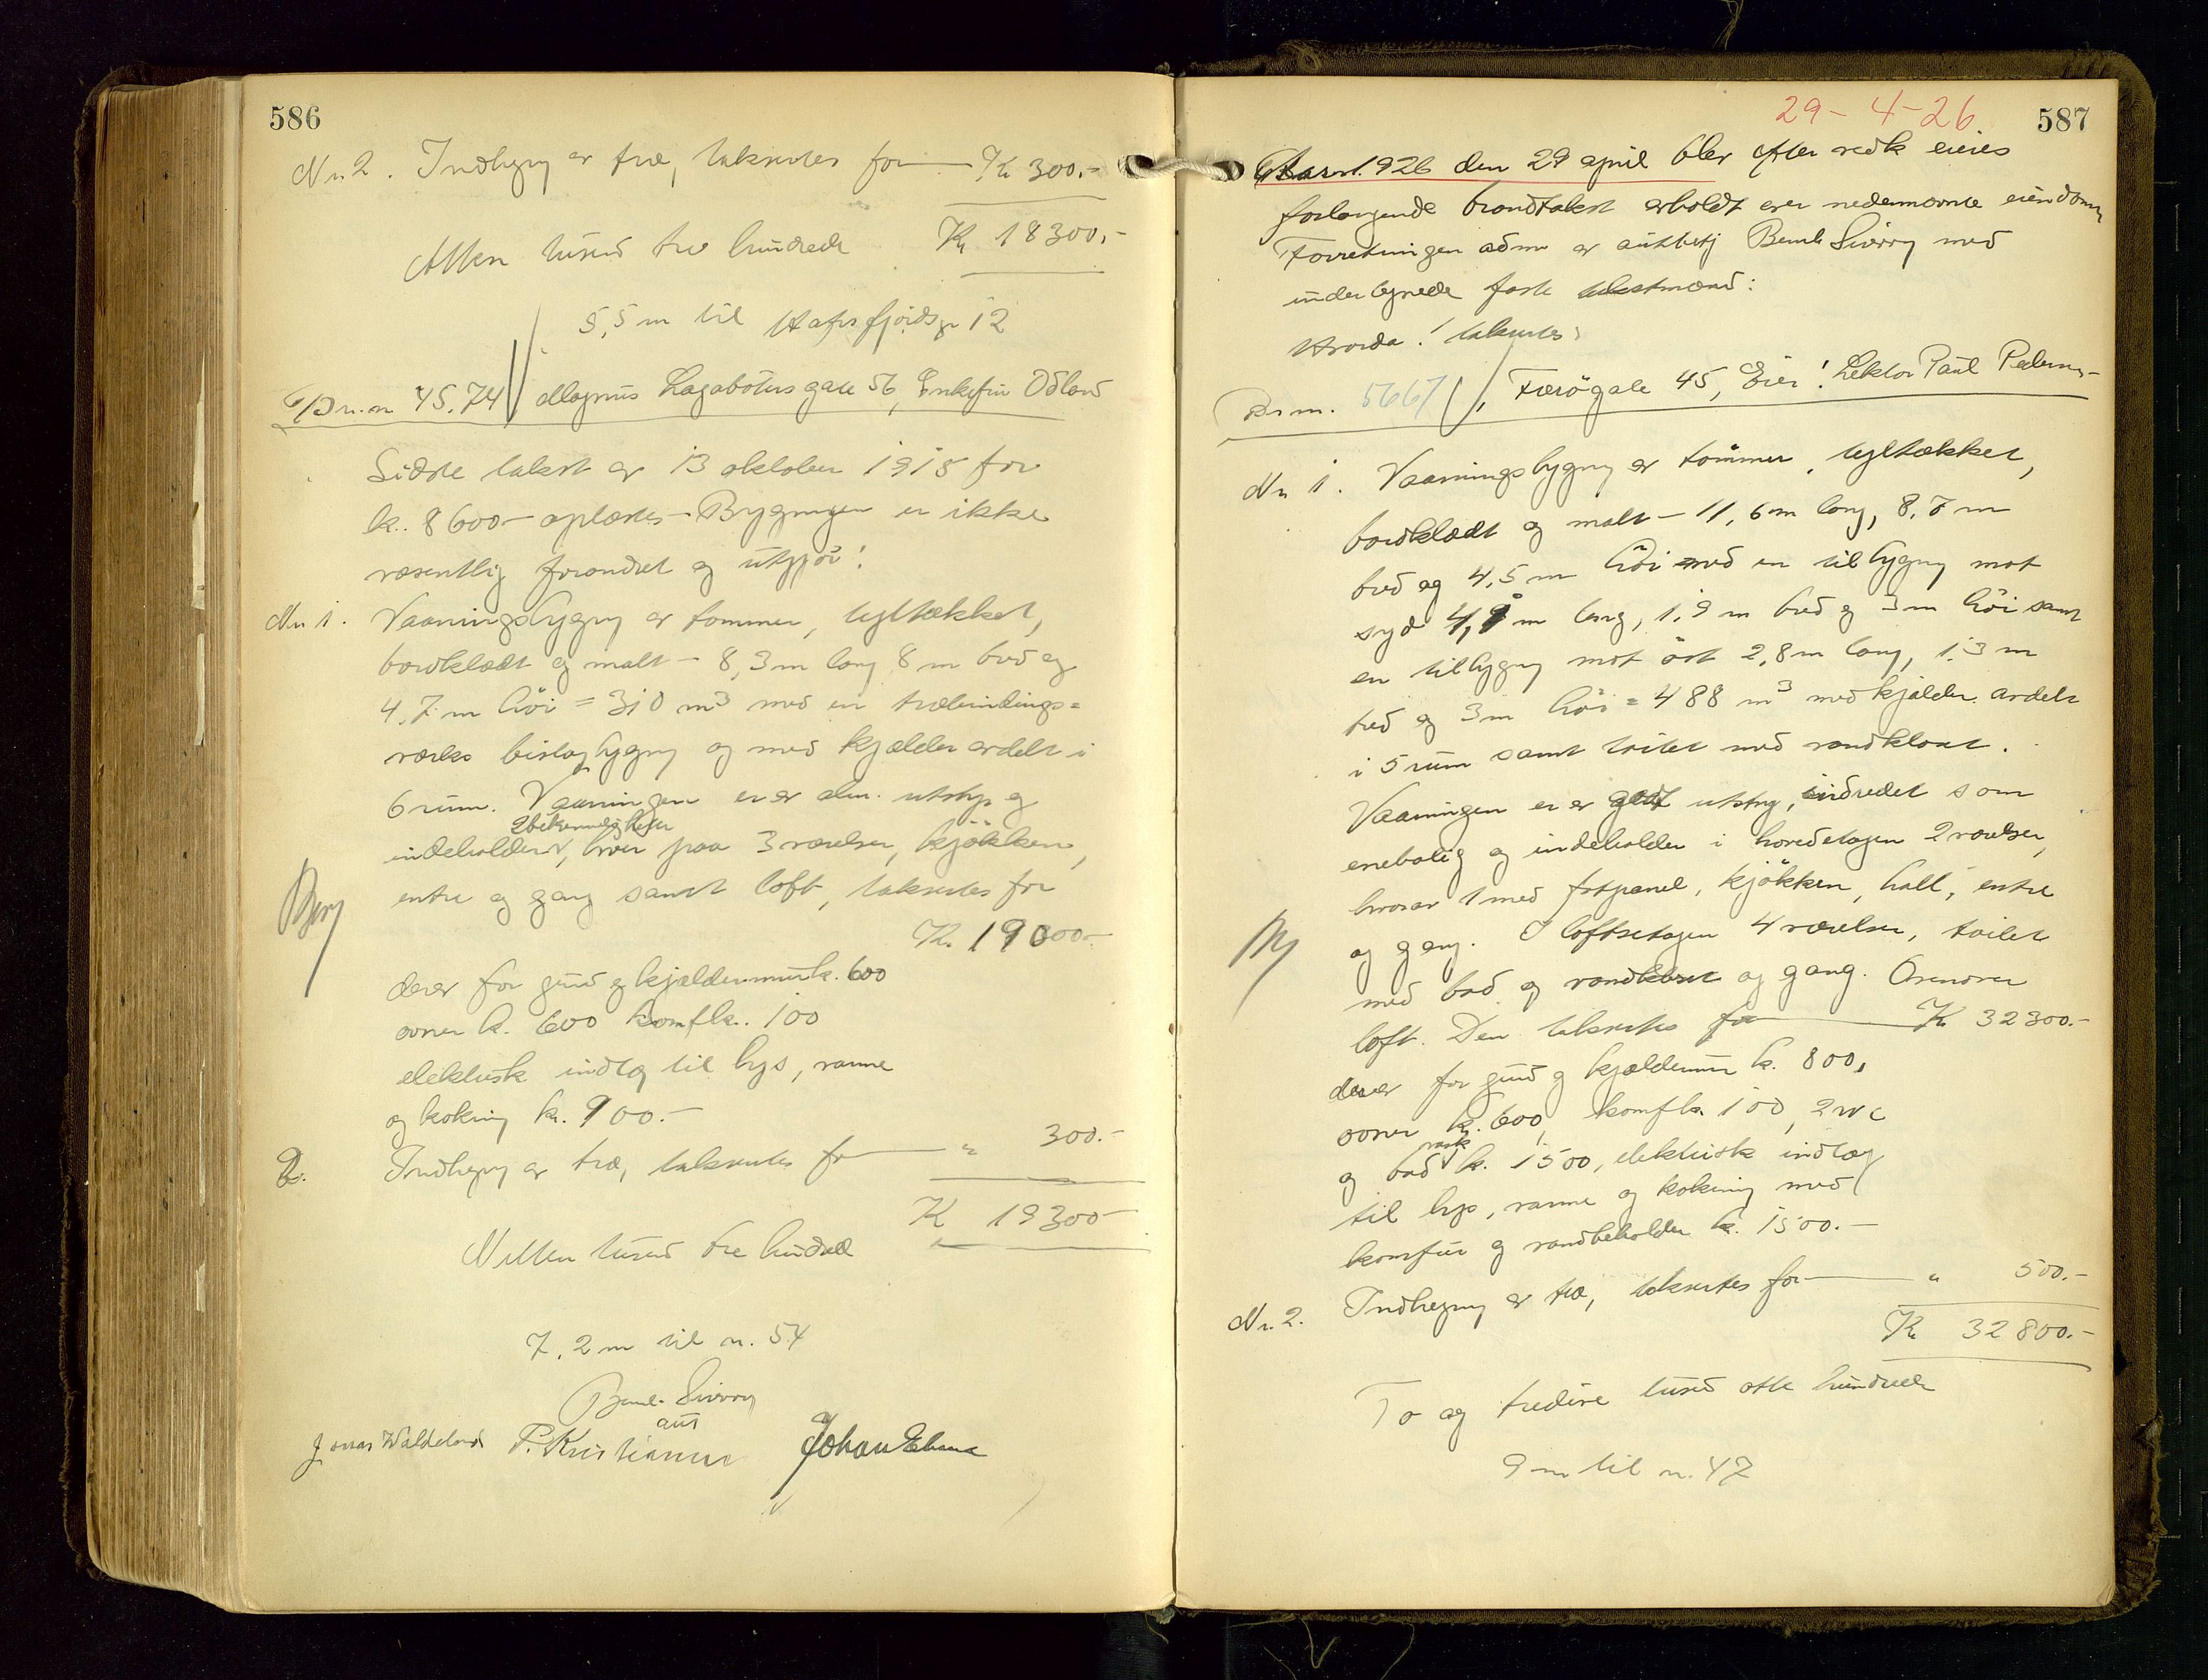 586
Nr. 2. Indhegn av træ, takseres for — Kr 300.-
Kr 18300.-
Atten tusend tre hundrede
5,5 m til Hafrsfjordsgt 12
Br.nr 4574 Magnus Lagabøters gate 56, Enkefru Odland
Sidste takst av 13 oktober 1915 for
kr. 8600- oplæstes - Bygningen er ikke
væsentlig forandret og utgjør:
Nr. 1. Vaaningsbygn av tømmer, tegltækket,
bordklædt og malt - 8,3 m lang 8 m bred og
4,7 m høi = 310 m³ med en træbindings=
verks bislagbygn og med kjælder avdelt i
6 rum. Vaaningen er av alm. utstyr og
2 bekvemmeligheter
indeholder, hver paa 3 værelser, kjøkken,
entre og gang samt loft, takseres for
Kr. 19000.-
derav for grund og kjældermur k. 600
ovner k. 600 komf k. 100
elektrisk indlæg til lys, varme
og kokning k. 900.-
2. Indhegn av træ, takseres for — " 300.-
Kr 19300-
Nitten tusend tre hundrede
7,2 m til nr. 54
Bernh. Sivery
aut
Jonas Waldeland P. Kristiansen Johan
29-4-26
587
Aar 1926 den 29 april blev efter vedk eieres
forlangende brandtakst avholdt over nedennævnte eiendom
Forretningen adm av autbetj Bernh Sivery med
undertegnede faste takstmænd:
Hvorda! takseres:
Br nr. 5667, Færøgate 45, Eier: Lektor Paul Pedersen
Nr 1. Vaaningsbygn av tømmer, tegltækket,
bordklædt og malt - 11,6 m lang, 8,7 m
bred og 4,5 m høi med en tilbygn mot
syd 4,9 m lang, 1,9 m bred og 3 m høi samt
en tilbygn mot øst 2,8 m lang, 1,3 m
bred og 3 m høi = 488 m³ med kjælder avdelt
i 5 rum samt toilet med vandkloset.
Vaaningen er av godt utstyr, indredet som
enebolig og indeholder i hovedetagen 2 værelser,
hvorav 1 med fotpanel, kjøkken, hall, entre
og gang. I loftsetagen 4 værelser, toilet
med bad og vandklosset og gang. Ovenover
loft. Den takseres for — Kr 32300.-
derav for grund og kjældermur k. 800,
ovner k. 600, komf k 100, 2 wc
vask
og bad k. 1500, elektrisk indlæg
til lys, varme og kokning med
komfur og vandbeholder k. 1500.-
Nr. 2. Indhegn av træ, takseres for — " 500.-
Kr 32800.-
To og tredive tusend otte hundrede
9 m til nr. 47